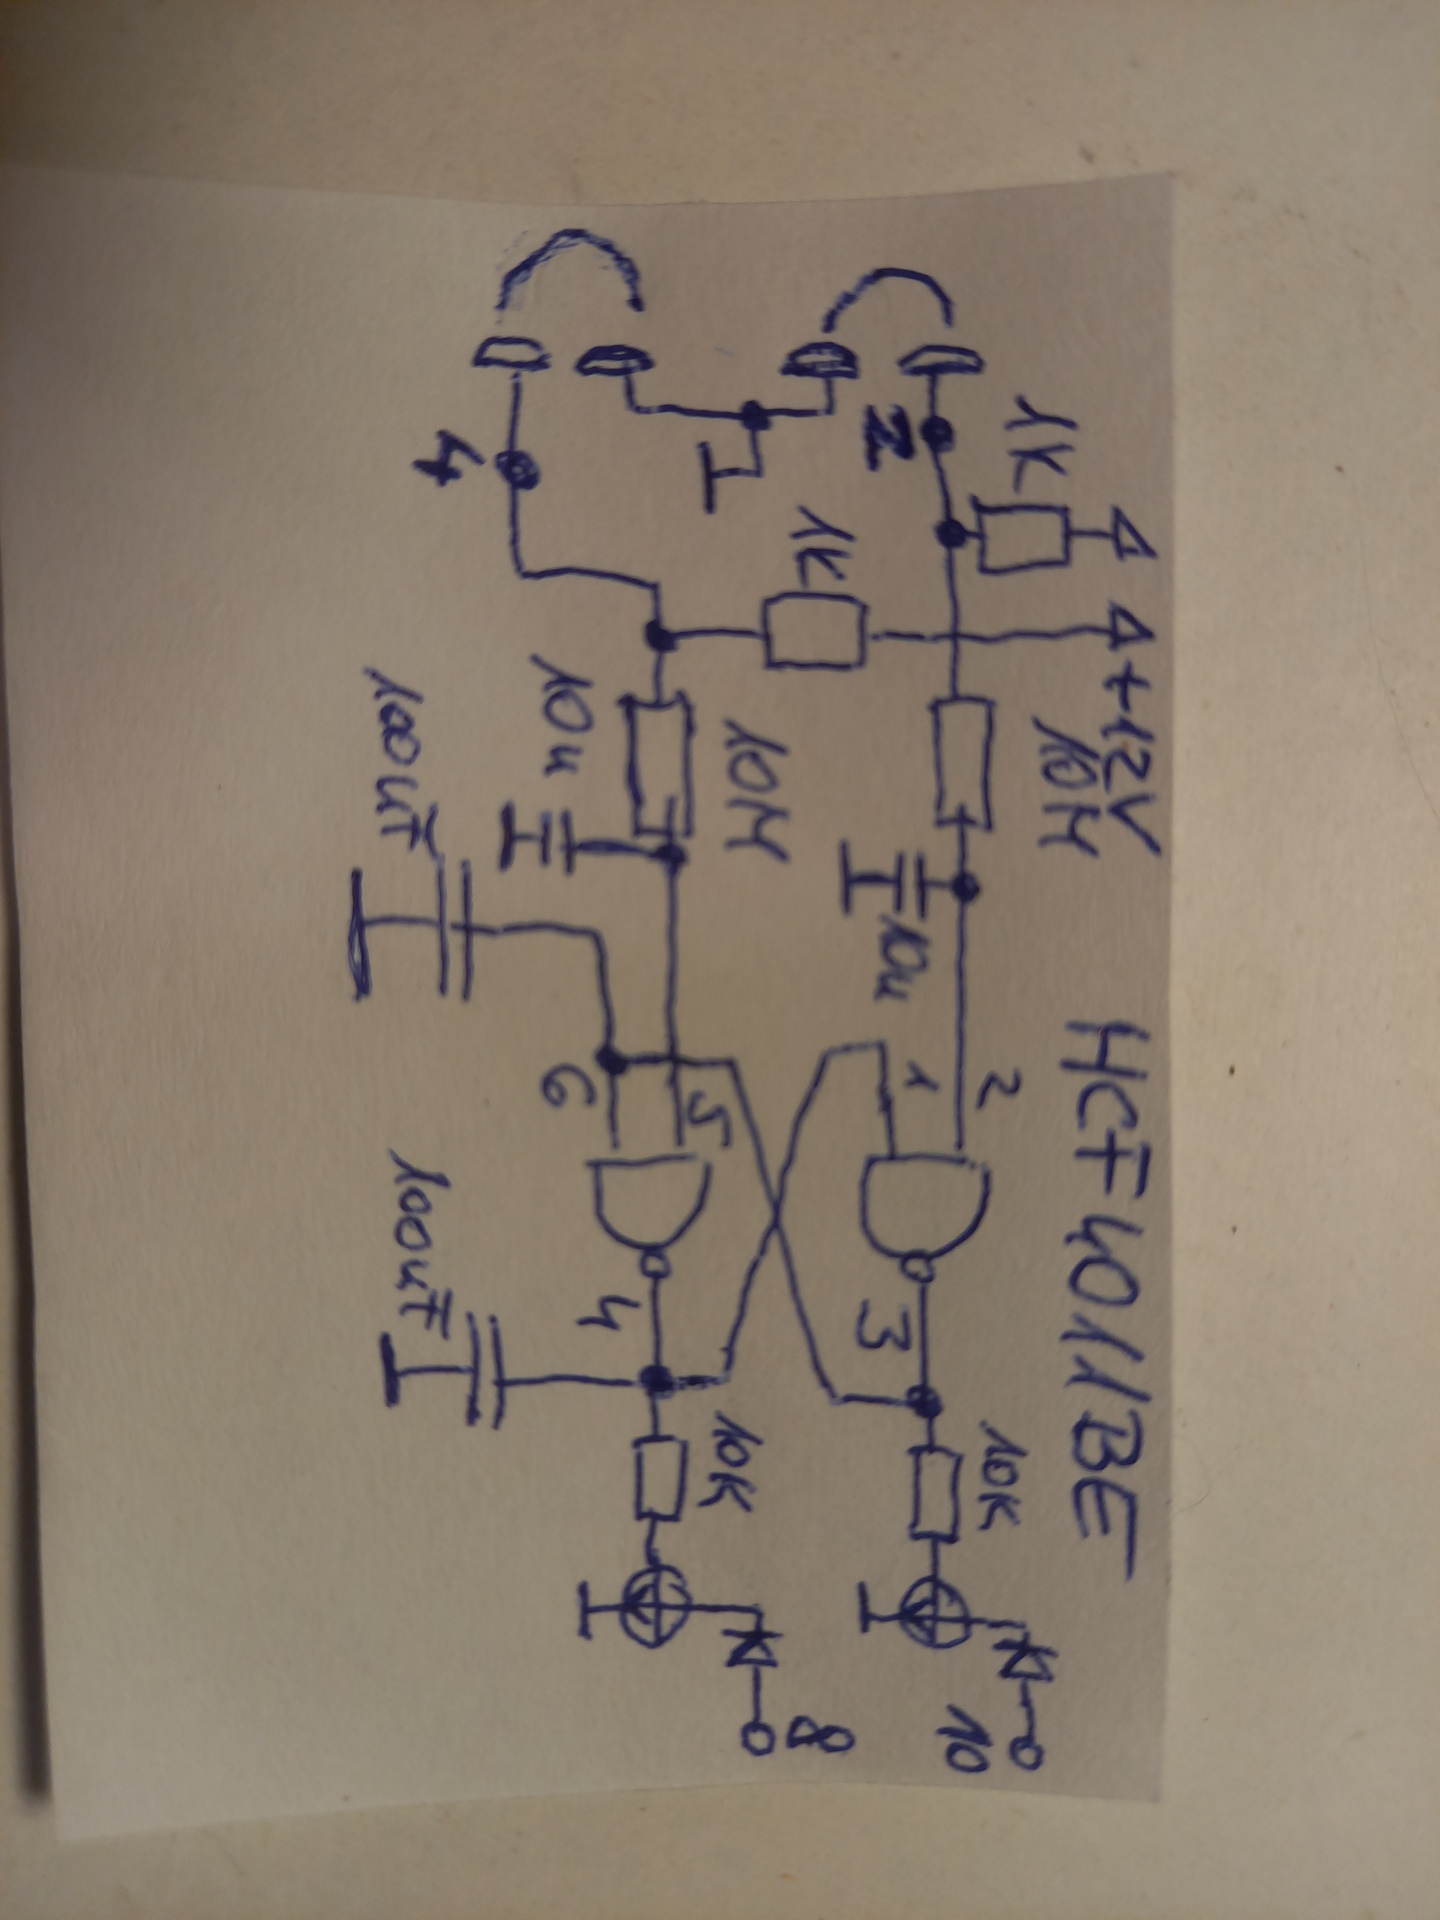 HCF4011BE
+12V
1K
10M
2
1K
10u
2
1
3
10K
10
10M
4
10u
5
6
4
10K
8
100uF
100uF